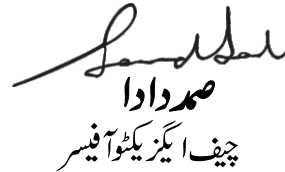 صمد دادا
چیف ایگزیکٹو آفیسر